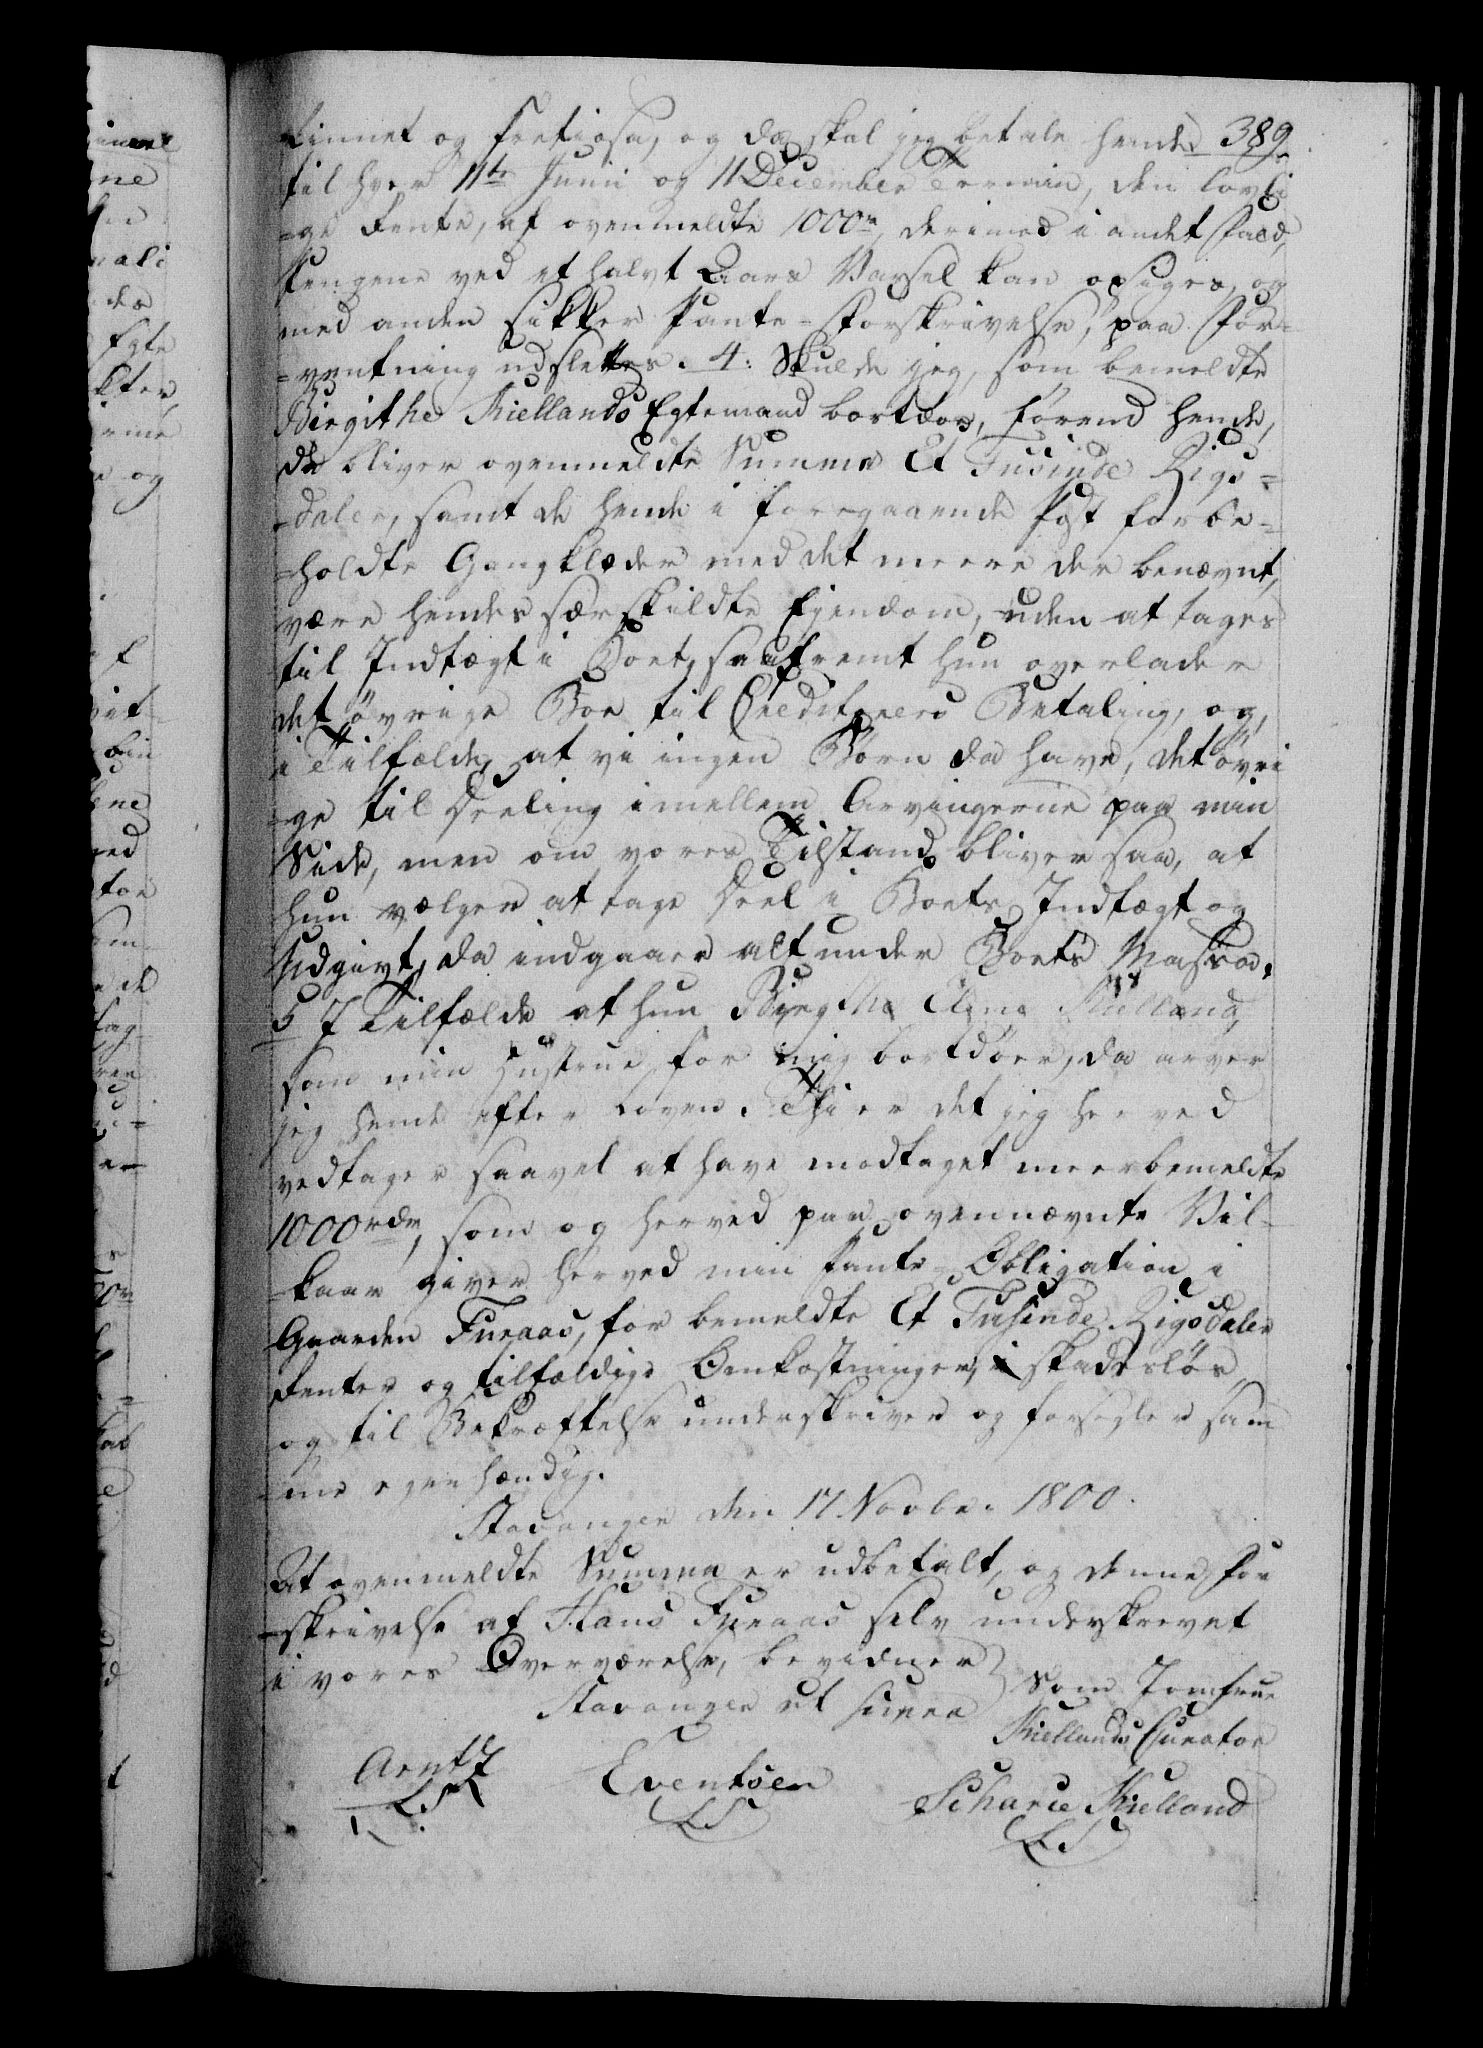 Linnet og Pretiosa, og da skal jeg betale hende 389.
til hver 11te Junii og 11 December Termin, den lovli
=ge Rente, af ovenmeldte 1000rd, derimod i andet Fald,
Pengene ved et halvt Aars Varsel kan opsiges, og
med anden sikker Pante-Forskrivelse, paa For=
=ventning udslettes. 4: Skulde jeg, som bemeldte
Birgithe Kiellands Egtemand bortdøe, førend hende,
da bliver ovenmeldte Summa Et Tusinde Rigs=
=daler, samt de hende i foregaaende Post forbe=
=holdte Gangklæder med det meere der benævnt,
være hendes særskildte Ejendom, uden at tages
til Indtægt i Boet, saafremt hun overlader
det øvrige Boe til Creditorers Betaling, og,
i Tilfælde, at vi ingen Børn da have, det øvri
=ge til Deeling imellem Arvingerne paa min
Side, men om vores Tilstand bliver saa, at
hun vælger at tage Deel i Boets Indtægt og
Udgivt, da indgaaer alt under Boets Massa.
5 I Tilfælde at hun Birgitha Kielland,
som min Hustrue for mig bortdøer, da arver
jeg hende efter Loven. Thi er det jeg herved
vedtager saavel at have modtaget meerbemeldte
1000rdr, som og herved paa ovennævnte Vil=
=kaar giver herved min Pante-Obligation i
Gaarden Fueaas, for bemeldte Et Tusinde Rigsdaler
Renter og tilfældige Omkostninger, skadesløs,
og til Bekræftelse underskriver og forsegler sam
=me egenhændig.
Stavanger den 17. Novbr. 1800.
At ovenmeldte Summa er udbetalt, og denne For
=skrivelse af Hans Fueaas selv underskrevet
i vores Overværelse, bevidner
Stavanger ut supra
Som Jomfrue
Kiellands Curator
Arentz Eventsen Scharie Kielland
LS LS LS